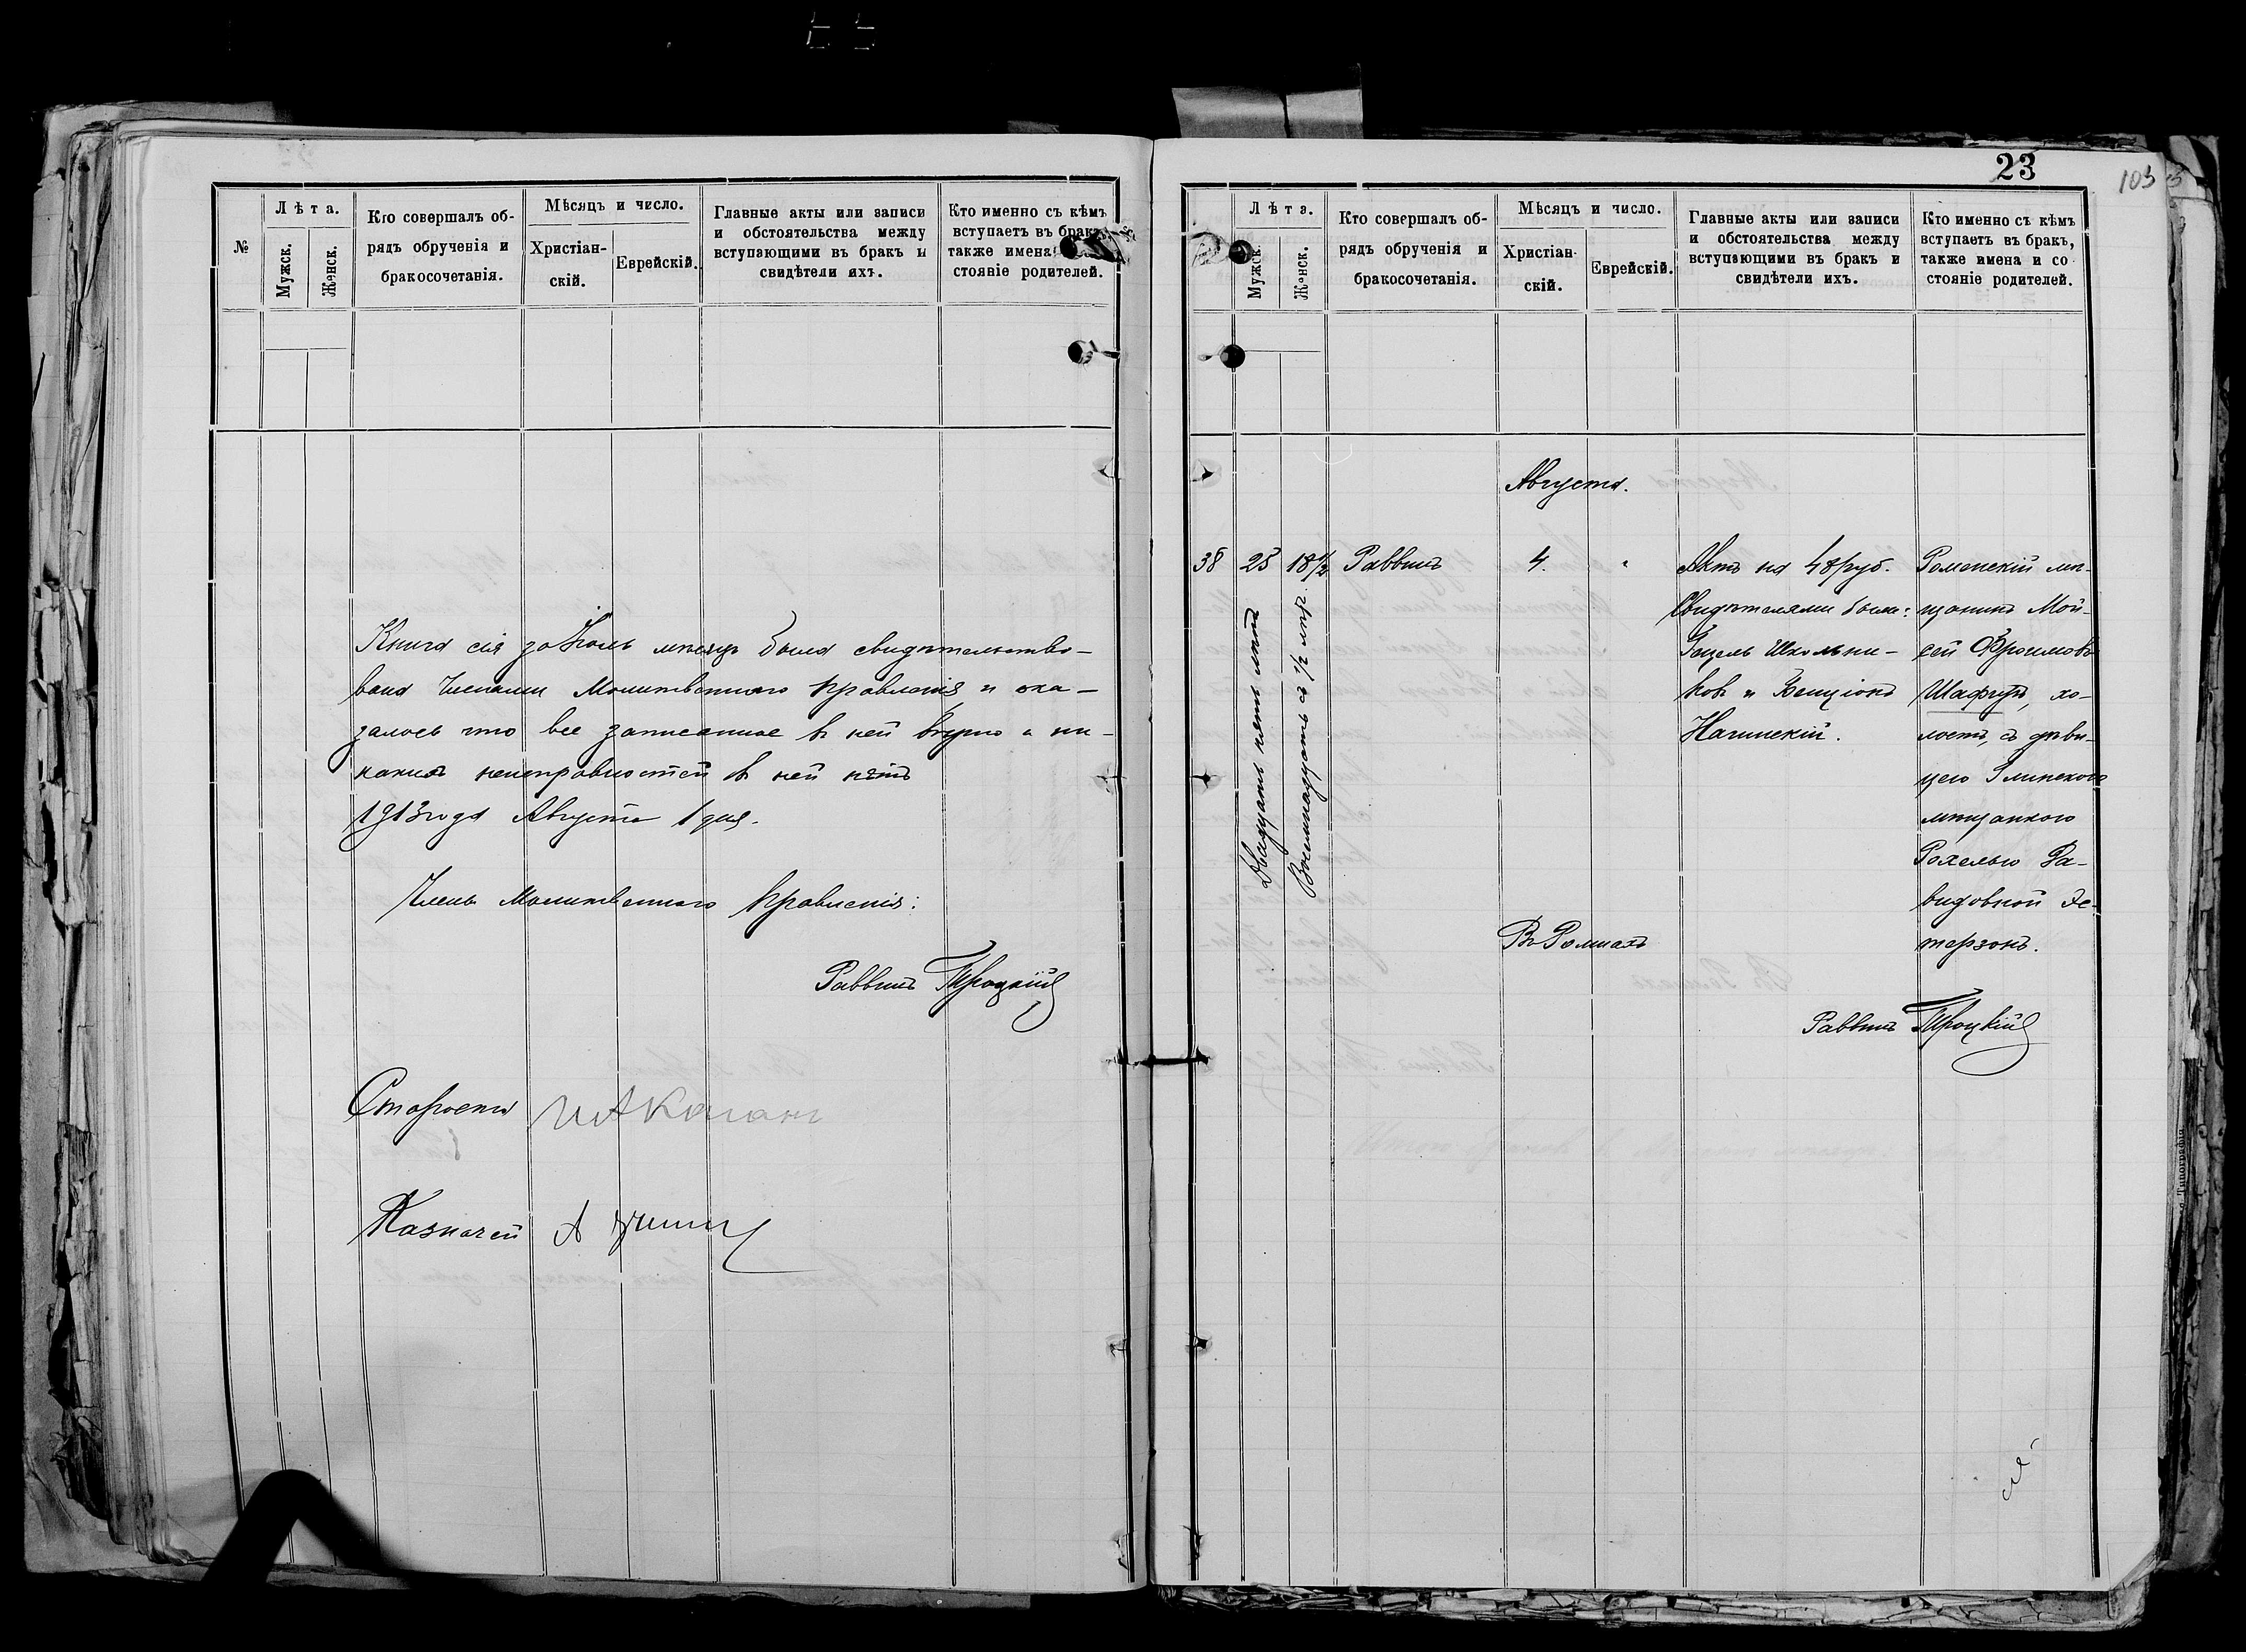 №
Лѣта.
Мужск.
Женск.
Кто совершалъ об-
рядъ обрученія и
бракосочетанія.
Мѣсяцъ и число.
Христіан-
скій.
Еврейскій.
Главные акты или записи
и обстоятельства между
вступающими въ бракъ и
свидѣтели ихъ.
Кто именно съ кѣмъ
вступаетъ въ бракъ
также имена
стояніе родителей.
Книга сія за Іюль мѣсяцъ была свидѣтельство-
вана Членами Молитвеннаго Правленія и ока-
залось что все записанное въ ней вѣрно и ни-
какихъ неисправностей въ ней нѣтъ
1913 года Августа 1 дня.
Члены Молитвеннаго Правленія:
Раввинъ Троцкій
Староста И А Коганъ
Казначей А
23
103
Лѣта.
Мужск.
Женск.
Кто совершалъ об-
рядъ обрученія и
бракосочетанія.
Мѣсяцъ и число.
Христіан-
скій.
Еврейскій.
Главные акты или записи
и обстоятельства между
вступающими въ бракъ и
свидѣтели ихъ.
Кто именно съ кѣмъ
вступаетъ въ бракъ,
также имена и со
стояніе родителей.
Августа.
38
25
Двадцать пять лѣтъ
18 1/2
Восемнадцать съ 1/2 лѣтъ.
Раввинъ
4.
"
Актъ на 48 руб.
Свидѣтелями были:
Гецель Школьни-
ковъ и Бенціонъ
Нагинскій.
Роменскій мѣ-
щанинъ Мой-
сей Фроимовъ
Шафгутъ, хо-
лостъ, съ дѣви-
цею Глинскою
мѣщанкою
Рохелью Да-
видовной Де-
терзонъ.
Въ Ромнахъ
Раввинъ Троцкій